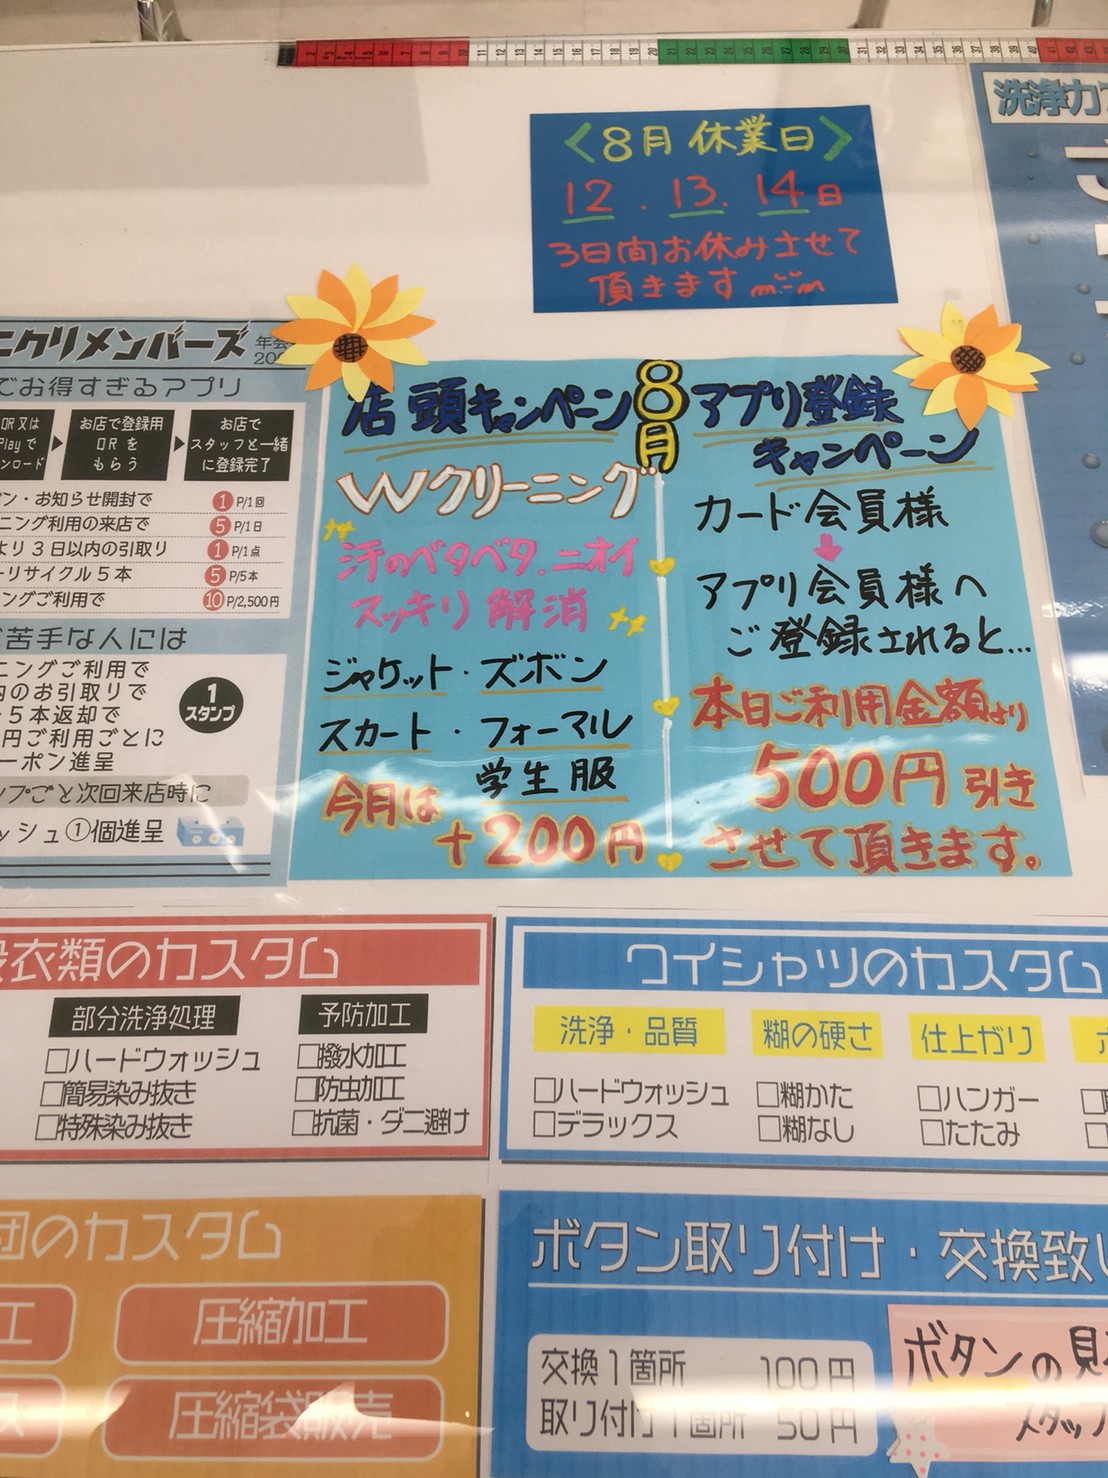 洗浄力
<8月 休業日>
12.13.14日
3日間お休みさせて
頂きます
クリメンバーズ
年会
でお得すぎるアプリ
QR又は
Playで
ンロード
お店で登録用
QRを
もらう
お店で
スタッフと一緒
に登録完了
ン・お知らせ開封で 1 P/1回
ニング利用の来店で 5 P/1日
より3日以内の引取り 1 P/1点
ーリサイクル5本 5 P/5本
ングご利用で 10 P/2,500円
苦手な人には
ニングご利用で
内のお引取りで
5本返却で
円ご利用ごとに
ーポン進呈
1
スタンプ
プごと次回来店時に
ッシュ①個進呈
8月
店頭キャンペーン
Wクリーニング
汗のベタベタ.ニオイ
スッキリ解消
ジャケット・ズボン
スカート・フォーマル
学生服
今月は
+200円
アプリ登録
キャンペーン
カード会員様
アプリ会員様へ
ご登録されると...
本日ご利用金額より
500円引き
させて頂きます。
衣類のカスタム
部分洗浄処理
□ハードウォッシュ
□簡易染み抜き
□特殊染み抜き
予防加工
□撥水加工
□防虫加工
□抗菌・ダニ避け
ワイシャツのカスタム
洗浄・品質
□ハードウォッシュ
□デラックス
糊の硬さ
□糊かた
□糊なし
仕上がり
□ハンガー
□たたみ
団のカスタム
工
圧縮加工
ス
圧縮袋販売
ボタン取り付け・交換致し
交換1箇所 100円
取り付け1箇所 50円
ボタンの見
スタッフ